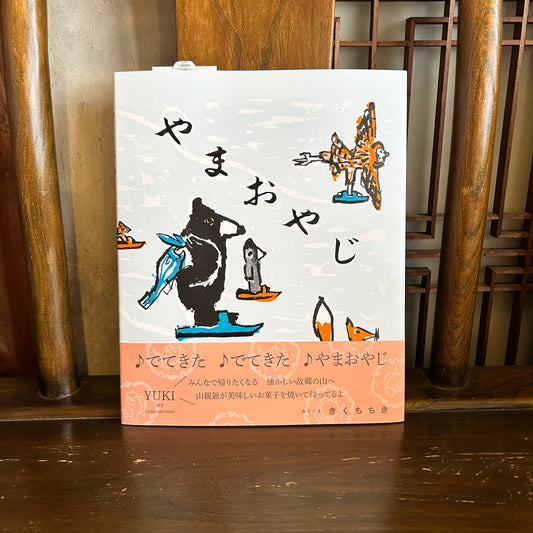 やまおやじ
♪でてきた ♪でてきた ♪やまおやじ
みんなで帰りたくなる 懐かしい故郷の山へ
YUKI
歌手
山親爺が美味しいお菓子を焼いて待ってるよ
さく・え きくちちき